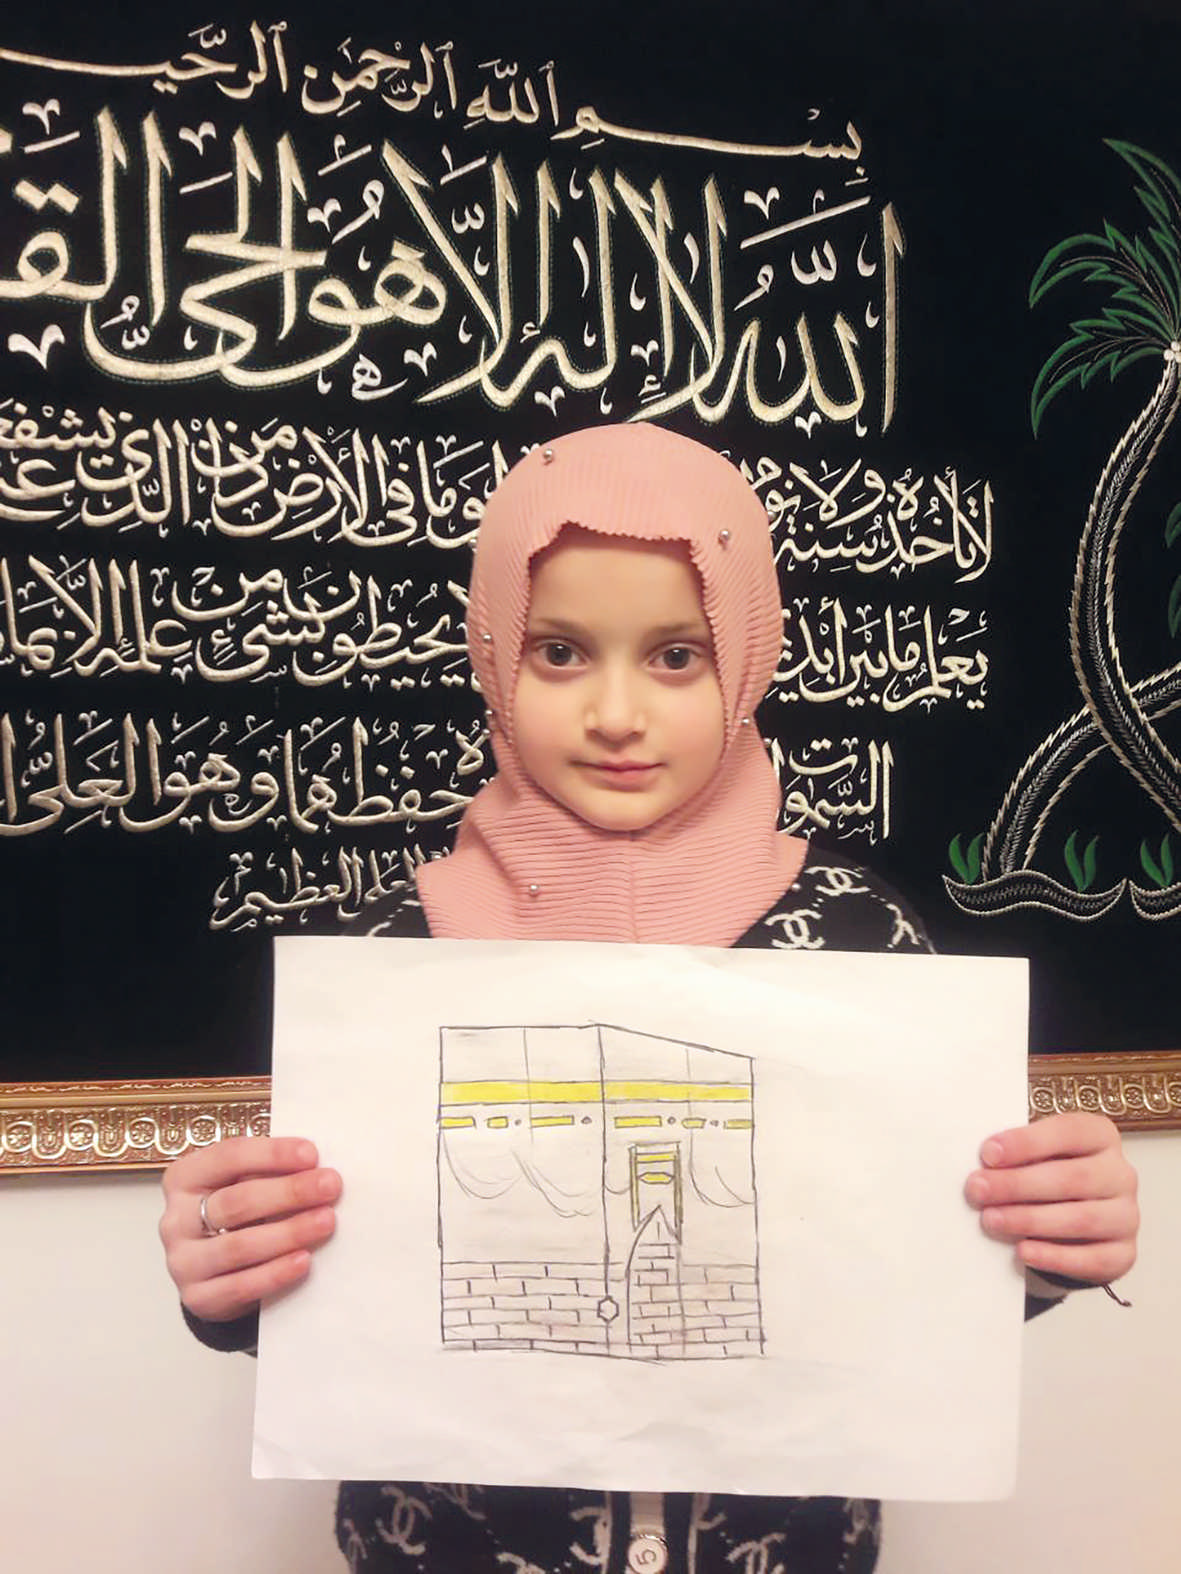 بِسْمِ اللَّهِ الرَّحْمَنِ
اللَّهُ لَا إِلَهَ إِلَّا هُوَ الْحَيُّ
لَا تَأْخُذُهُ سِنَةٌ وَلَا نَوْمٌ وَمَا فِي الْأَرْضِ مَنْ ذَا الَّذِي
يَعْلَمُ مَا بَيْنَ يُحِيطُونَ بِشَيْءٍ مِنْ عِلْمِهِ إِلَّا بِمَا
السَّمَوَاتِ حِفْظُهُمَا وَهُوَ الْعَلِيُّ
الْعَظِيمُ
5